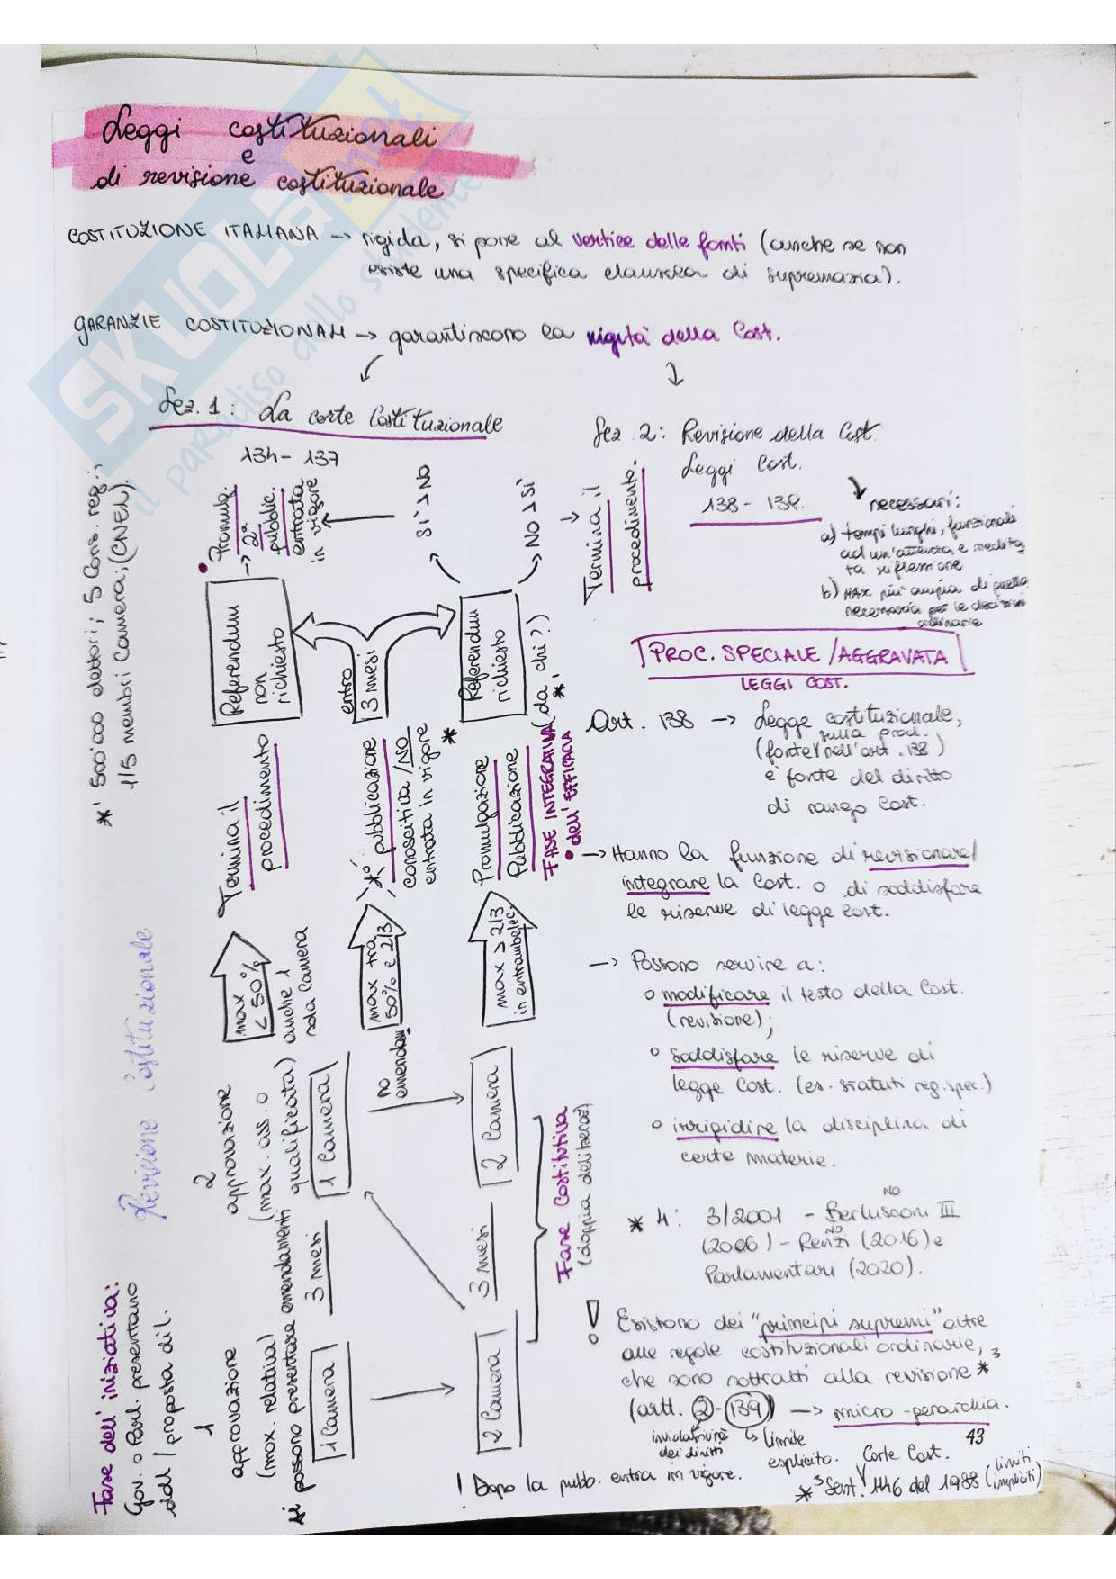 Leggi costituzionali
e
di revisione costituzionale
SKUOLA.net
il paradiso dello studente
COSTITUZIONE ITALIANA → rigida, si pone al vertice delle fonti (anche se non
esiste una specifica clausola di supremazia).
GARANZIE COSTITUZIONALI → garantiscono la rigità della Cost.
Sez. 1: La corte Costituzionale
134 - 137
Sez. 2: Revisione della Cost.
Leggi Cost.
138 - 139
necessari:
a) tempi lunghi, funzionali
ad un'attenta e medita
ta riflessione
b) MAX più ampia di quella
necessaria per le decisioni
ordinarie
PROC. SPECIALE / AGGRAVATA
LEGGI COST.
Art. 138 → Legge costituzionale,
sulla prod.
(fonte nell'art. 138)
è fonte del diritto
di rango Cost.
→ Hanno la funzione di revisionare/
integrare la Cost. o di soddisfare
le riserve di legge cost.
→ Possono servire a:
o modificare il testo della Cost.
(revisione);
o Soddisfare le riserve di
legge Cost. (es. statuti reg. spec.)
o irrigidire la disciplina di
certe materie.
NO
* 4: 3/2001 - Berlusconi III
(2006) - Renzi (2016) e
NO
Parlamentari (2020).
! Esistono dei "principi supremi" oltre
alle regole costituzionali ordinarie,
che sono sottratti alla revisione *3
(artt. 2 - 139) → micro-gerarchia.
inviolabilità
dei diritti
↳ limite
esplicito.
43
Corte Cost.
*3 Sent. 1146 del 1988 (limiti
impliciti)
! Dopo la pubb. entra in vigore.
Revisione Costituzionale
Fase dell'iniziativa:
Gov. o Parl. presentano
ddl / proposta di l.
1
approvazione
(max. relativa)
si possono presentare emendamenti
1 Camera
2 Camera
3 mesi
3 mesi
2
approvazione
(max. ass. o
qualificata)
1 Camera
no
emendam.
2 Camera
Fase Costitutiva
(doppia deliberaz.)
max
< 50%
anche 1
sola Camera
Termina il
procedimento
max tra
50% e 2/3
pubblicazione
conoscitiva / NO
entrata in vigore
max ≥ 2/3
in entrambe
Promulgazione
Pubblicazione
FASE INTEGRATIVA
• dell'EFFICACIA
entro
3 mesi
Referendum
non
richiesto
• Promulg.
→ 2ª
pubblic.
entrata
in vigore
Referendum
richiesto
(da chi?)
*'
SI > NO
NO > SI
Termina il
procedimento.
*' 500'000 elettori; 5 Cons. reg.;
1/5 membri Camera; (CNEL).